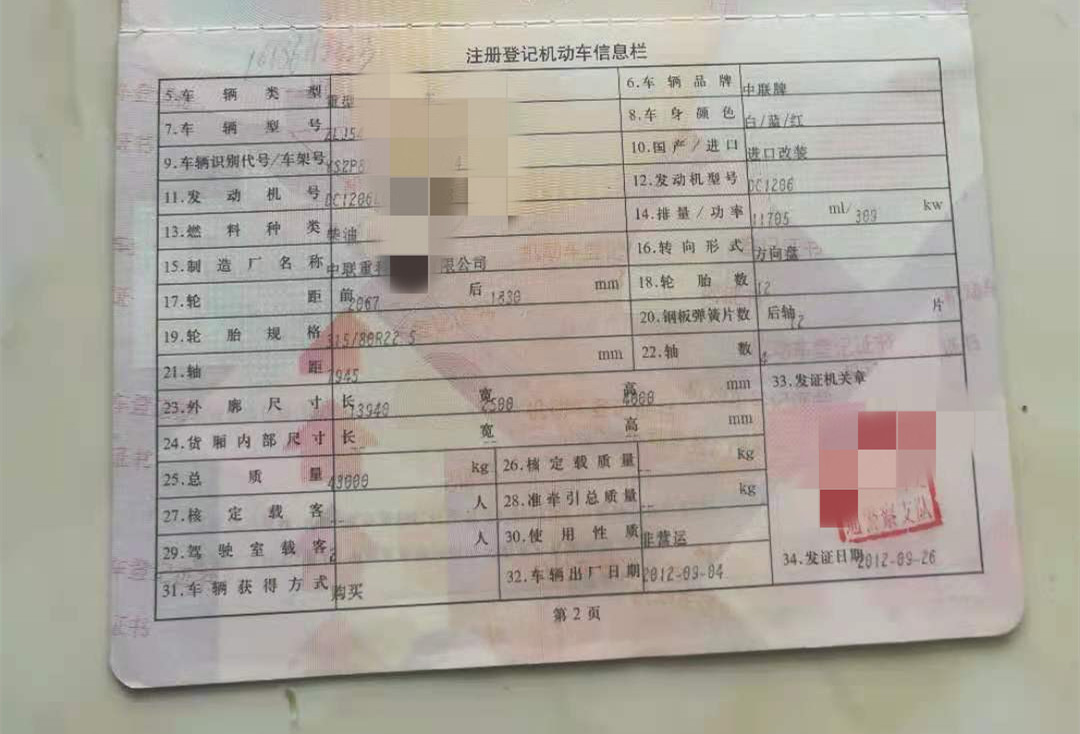 注册登记机动车信息栏
5.车辆类型 重型 6.车辆品牌 中联牌
7.车辆型号 8.车身颜色 白/蓝/红
9.车辆识别代号/车架号 YS2P8 4 10.国产/进口 进口改装
11.发动机号 DC1206 12.发动机型号 DC1206
13.燃料种类 柴油 14.排量/功率 11705 ml/ 309 kw
15.制造厂名称 中联重 限公司 16.转向形式 方向盘
17.轮距 前 2067 后 1830 mm 18.轮胎数 12
19.轮胎规格 315/80R22.5 20.钢板弹簧片数 后轴 12 片
21.轴距 1945 mm 22.轴数 4
23.外廓尺寸 长 13940 宽 2500 高 4000 mm 33.发证机关章
24.货厢内部尺寸 长 -- 宽 -- 高 -- mm
25.总质量 49000 kg 26.核定载质量 -- kg
27.核定载客 -- 人 28.准牵引总质量 -- kg
29.驾驶室载客 2 人 30.使用性质 非营运
31.车辆获得方式 购买 32.车辆出厂日期 2012-09-04 34.发证日期 2012-09-26
第2页